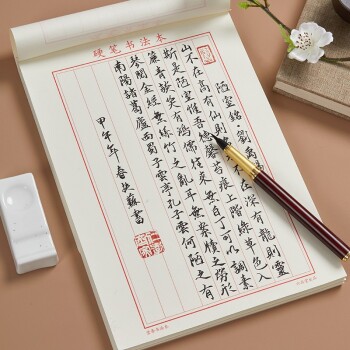 硬笔书法本
陋室銘 劉禹錫
山不在高有仙則名水不在深有龍則靈
斯是陋室惟吾德馨苔痕上階綠草色入
簾青談笑有鴻儒往來無白丁可以調素
琴閱金經無絲竹之亂耳無案牘之勞形
南陽諸葛廬西蜀子雲亭孔子雲何陋之有
甲午年春
書